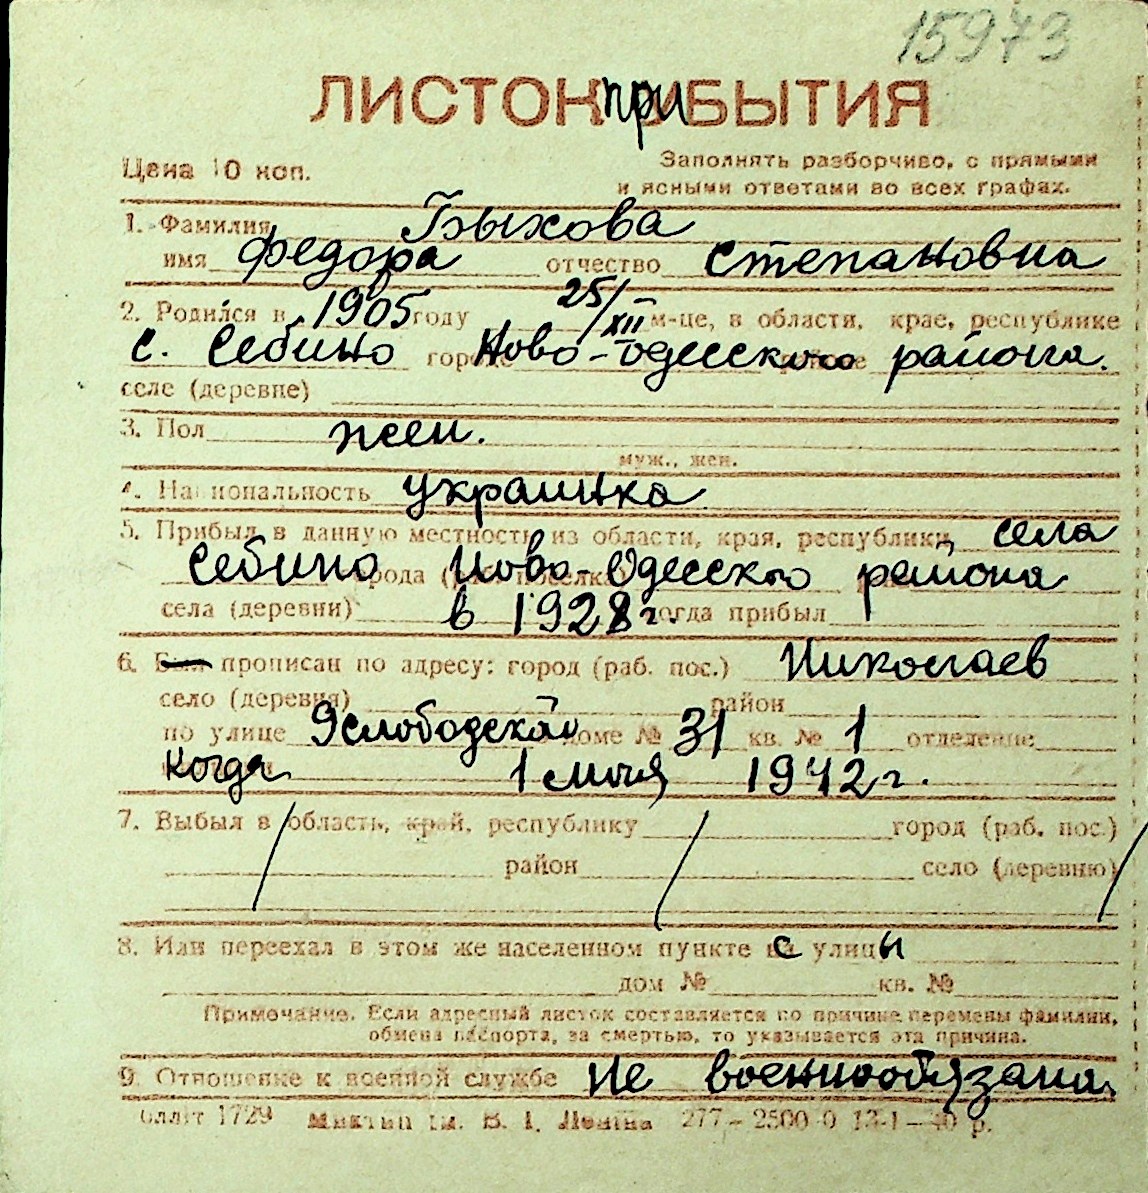 15973
ЛИСТОК при БЫТИЯ
Цена 10 коп.
Заполнять разборчиво, с прямыми
и ясными ответами во всех графах.
1. Фамилия Быхова
имя Федора отчество Степановна
2. Родился в 1905 году 25/XII м-це, в области, крае, республике
с. Себино городе Ново-Одесского района.
селе (деревне)
3. Пол жен.
муж., жен.
4. Национальность украинка
5. Прибыл в данную местность из области, края, республики, села
Себино города Ново-Одесского района
села (деревни) в 1928 г. когда прибыл
6. Был прописан по адресу: город (раб. пос.) Николаев
село (деревня) район
по улице Яслободская доме № 31 кв. № 1 отделение
когда 1 мая 1942 г.
7. Выбыл в область, край, республику город (раб. пос.)
район село (деревню)
8. Или переехал в этом же населенном пункте с улицы
дом № кв. №
Примечание. Если адресный листок составляется по причине перемены фамилии,
обмена паспорта, за смертью, то указывается эта причина.
9. Отношение к военной службе не военнообязана
1729 ім. В. І. Леніна 277—2500 0 13-1—40 р.